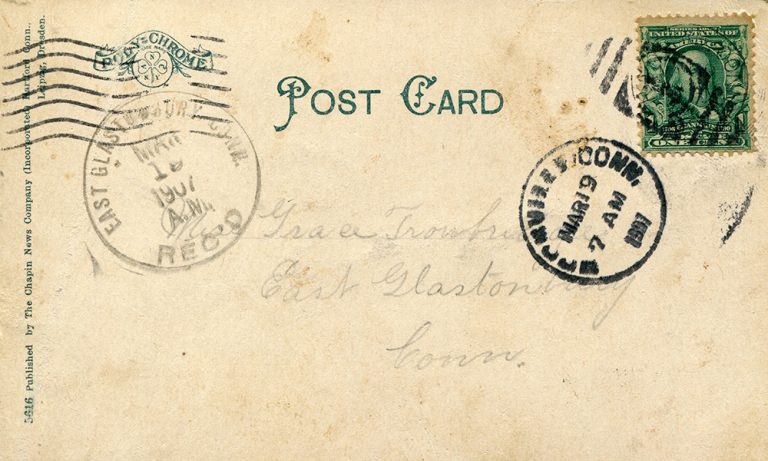 POLY-CHROME
POST CARD
SERIES 1902
UNITED STATES OF
AMERICA
ONE CENT
EAST GLASTONBURY, CONN.
MAR
19
1907
A.M.
REC'D
CONN.
MAR 19
7 AM
1907
Grace Trowbridge
East Glastonbury
Conn.
5616 Published by The Chapin News Company (Incorporated) Hartford Conn.,
Leipzig, Dresden.